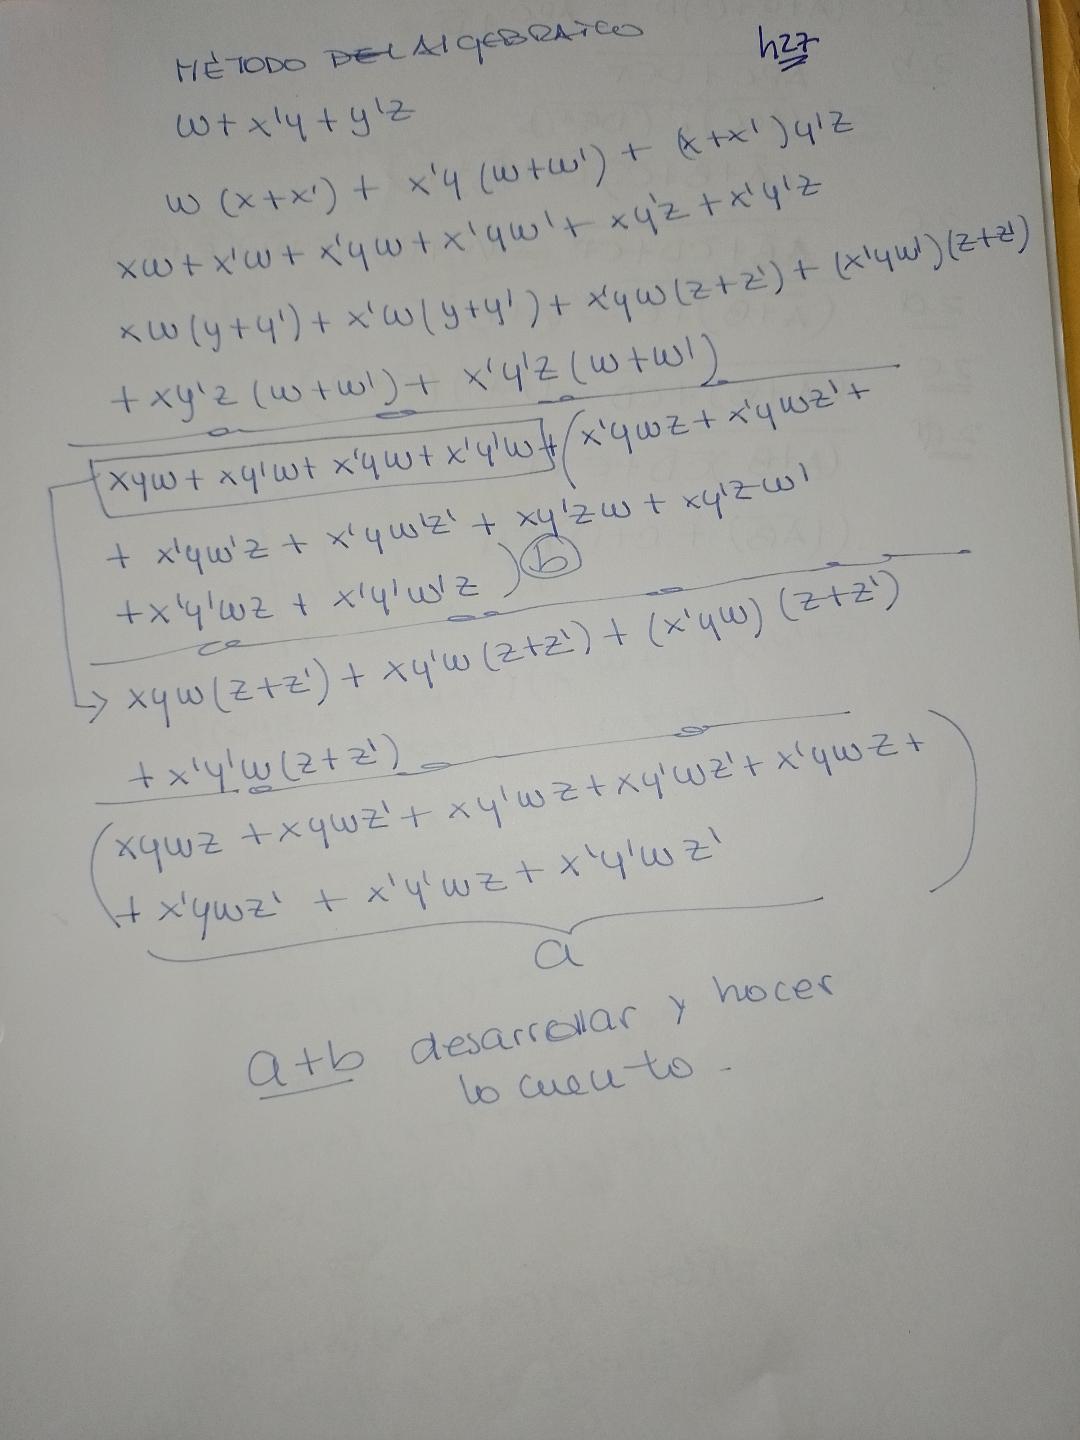 MÉTODO DEL ALGEBRAICO h27
w + x'y + y'z
w (x+x') + x'y (w+w') + (x+x')y'z
xw + x'w + x'yw + x'yw' + xy'z + x'y'z
xw(y+y') + x'w(y+y') + x'yw(z+z') + (x'yw')(z+z')
+ xy'z (w+w') + x'y'z (w+w')
xyw + xy'w + x'yw + x'y'w + (x'ywz + x'ywz' +
+ x'yw'z + x'yw'z' + xy'zw + xy'zw'
+ x'y'wz + x'y'w'z ) b
→ xyw(z+z') + xy'w(z+z') + (x'yw) (z+z')
+ x'y'w(z+z')
(xywz + xywz' + xy'wz + xy'wz' + x'ywz +
+ x'ywz' + x'y'wz + x'y'wz' )
a
a+b desarrollar y hacer
lo cuento.